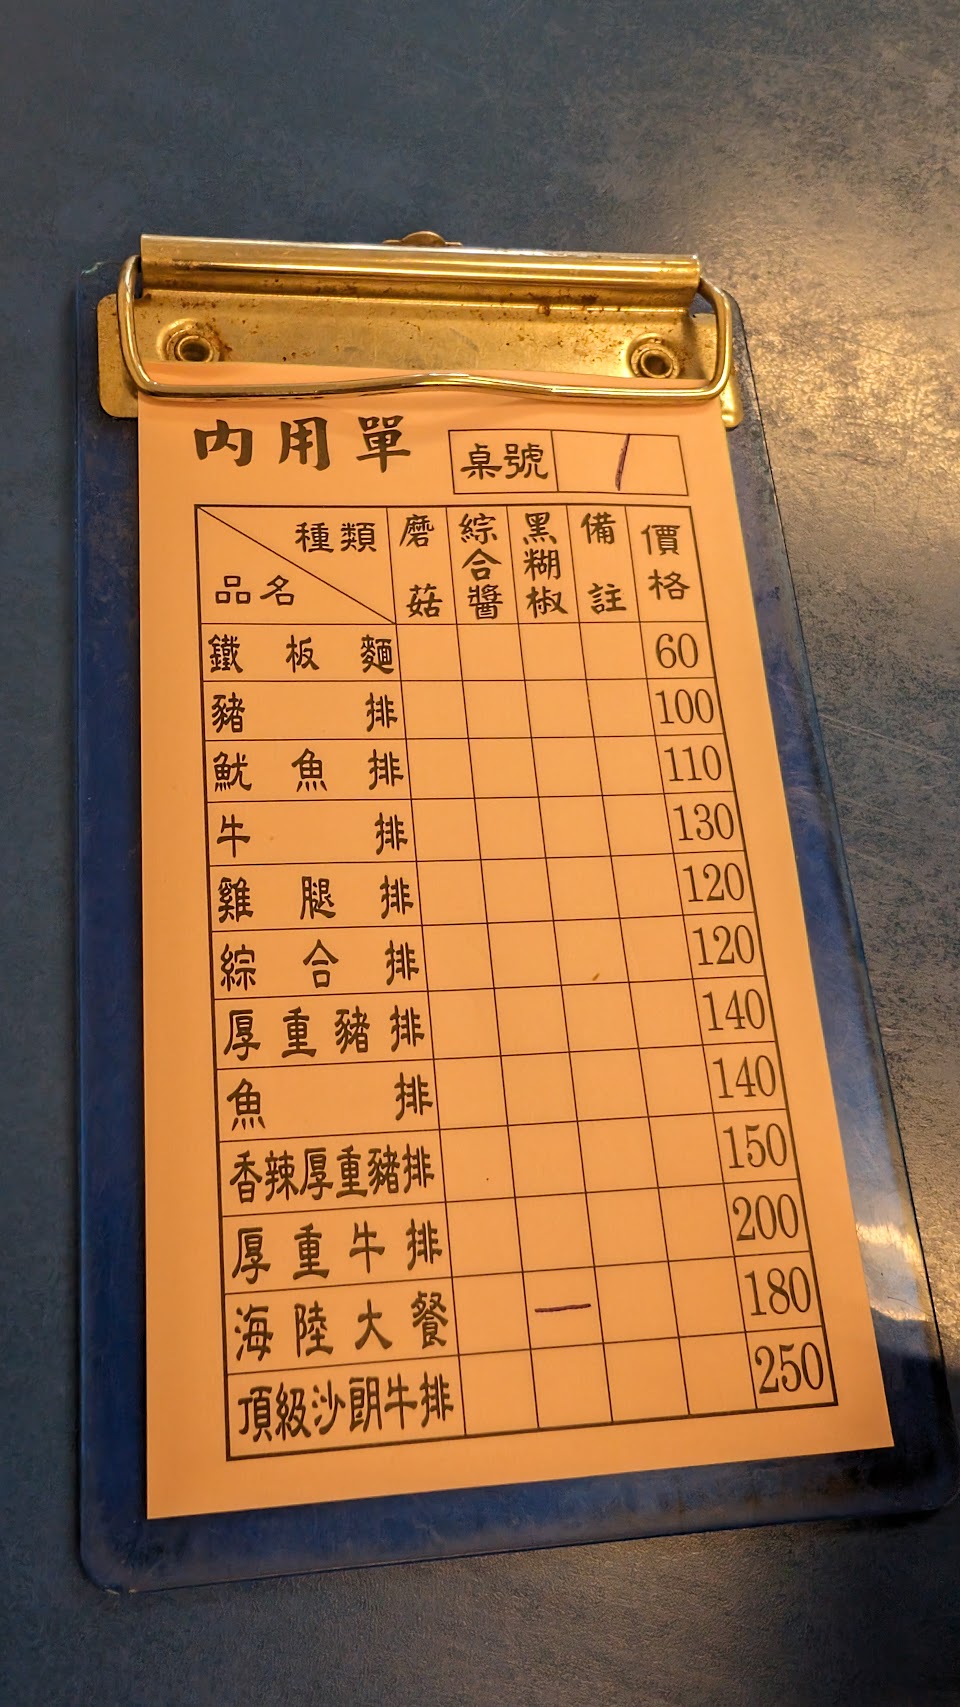 內用單
桌號 1
種類 磨菇 綜合醬 黑糊椒 備註 價格
品名
鐵板麵 60
豬排 100
魷魚排 110
牛排 130
雞腿排 120
綜合排 120
厚重豬排 140
魚排 140
香辣厚重豬排 150
厚重牛排 200
海陸大餐 一 180
頂級沙朗牛排 250